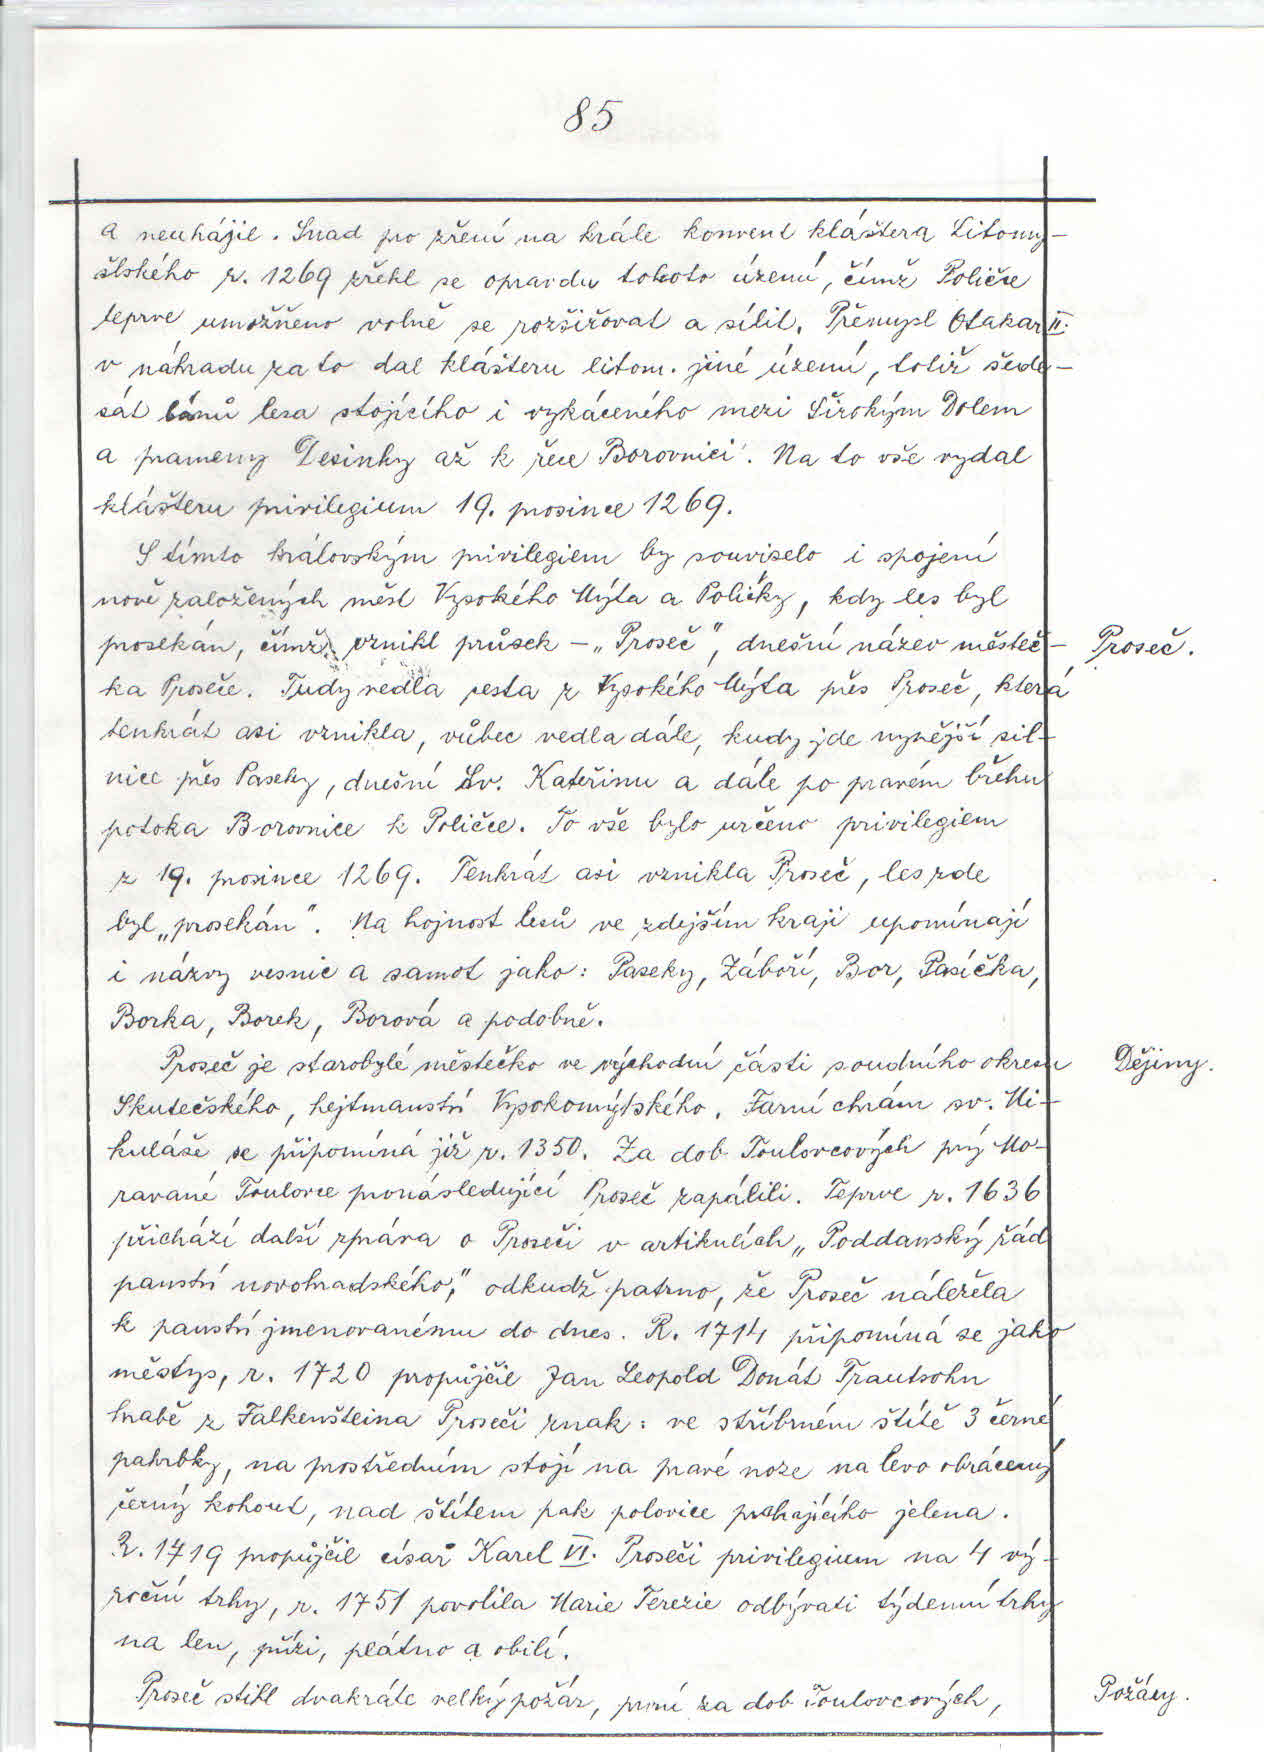 85
a neuhájil. Snad pro zření na krále konvent kláštera Litomy-
šlského r. 1269 zřekl se opravdu tohoto území, čímž Poličce
teprve umožněno volně se rozšiřovat a sílit. Přemysl Otakar II.
v náhradu za to dal klášteru litom. jiné území, totiž šede-
sát lánů lesa stojícího i vykáceného mezi Širokým Dolem
a prameny Desinky až k řece Borovnici. Na to vše vydal
klášteru privilegium 19. prosince 1269.
S tímto královským privilegiem by souviselo i spojení
nově založených měst Vysokého Mýta a Poličky, kdy les byl
prosekán, čímž vznikl průsek – „Proseč", dnešní název městeč-
Proseč.
ka Proseče. Tudy vedla cesta z Vysokého Mýta přes Proseč, která
tenkrát asi vznikla, vůbec vedla dále, kudy jde nynější sil-
nice přes Paseky, dnešní Sv. Kateřinu a dále po pravém břehu
potoka Borovnice k Poličce. To vše bylo určeno privilegiem
z 19. prosince 1269. Tenkrát asi vznikla Proseč, les zde
byl „prosekán". Na hojnost lesů ve zdejším kraji upomínají
i názvy vesnic a samot jako: Paseky, Záboří, Bor, Pasíčka,
Borka, Borek, Borová a podobně.
Proseč je starobylé městečko ve východní části soudního okresu
Dějiny.
Skutečského, hejtmanství Vysokomýtského. Farní chrám sv. Mi-
kuláše se připomíná již r. 1350. Za dob Toulovcových prý Mo-
ravané Toulovce pronásledující Proseč zapálili. Teprve r. 1636
přichází další zpráva o Proseči v artikulích „Poddanský řád
panství novohradského," odkudž patrno, že Proseč náležela
k panství jmenovanému do dnes. R. 1714 připomíná se jako
městys, r. 1720 propůjčil Jan Leopold Donát Trautsohn
hrabě z Falkenšteina Proseči znak: ve stříbrném štítě 3 černé
pahrbky, na prostředním stojí na pravé noze na levo obrácený
černý kohout, nad štítem pak polovice prchajícího jelena.
R. 1719 propůjčil císař Karel VI. Proseči privilegium na 4 vý-
roční trhy, r. 1751 povolila Marie Terezie odbývati týdenní trhy
na len, přízi, plátno a obilí.
Proseč stihl dvakráte velký požár, první za dob Toulovcových,
Požáry.